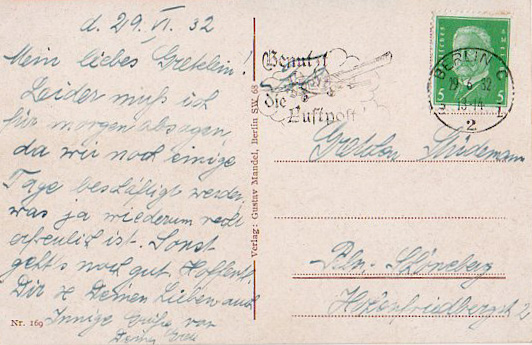 d. 29. VI. 32
Mein liebes Gretelein!
Leider muß ich
für morgen absagen
da wir noch einige
Tage beschäftigt werden
was ja wiederum recht
erfreulich ist. Sonst
geht's noch gut. Hoffentl.
Dir & Deinen Lieben auch
Innige Grüße von
Nr. 169
Verlag: Gustav Mandel, Berlin SW 68
Benutzt
die
Luftpost
BERLIN C
29 6 32
2
5 5
Bln-Schöneberg
Hohenfriedbergst 2